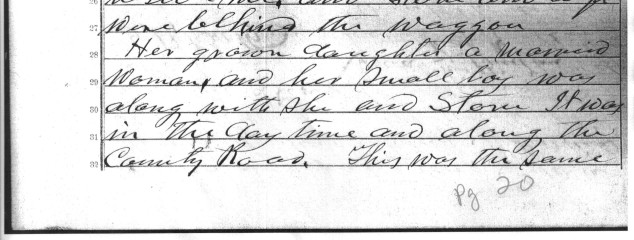 26
27 were behind the waggon
28 Her grown daughter a married
29 Woman, and her small boy was
30 along with she and Stone It was
31 in the day time and along the
32 County Road. This was the same
Pg 20